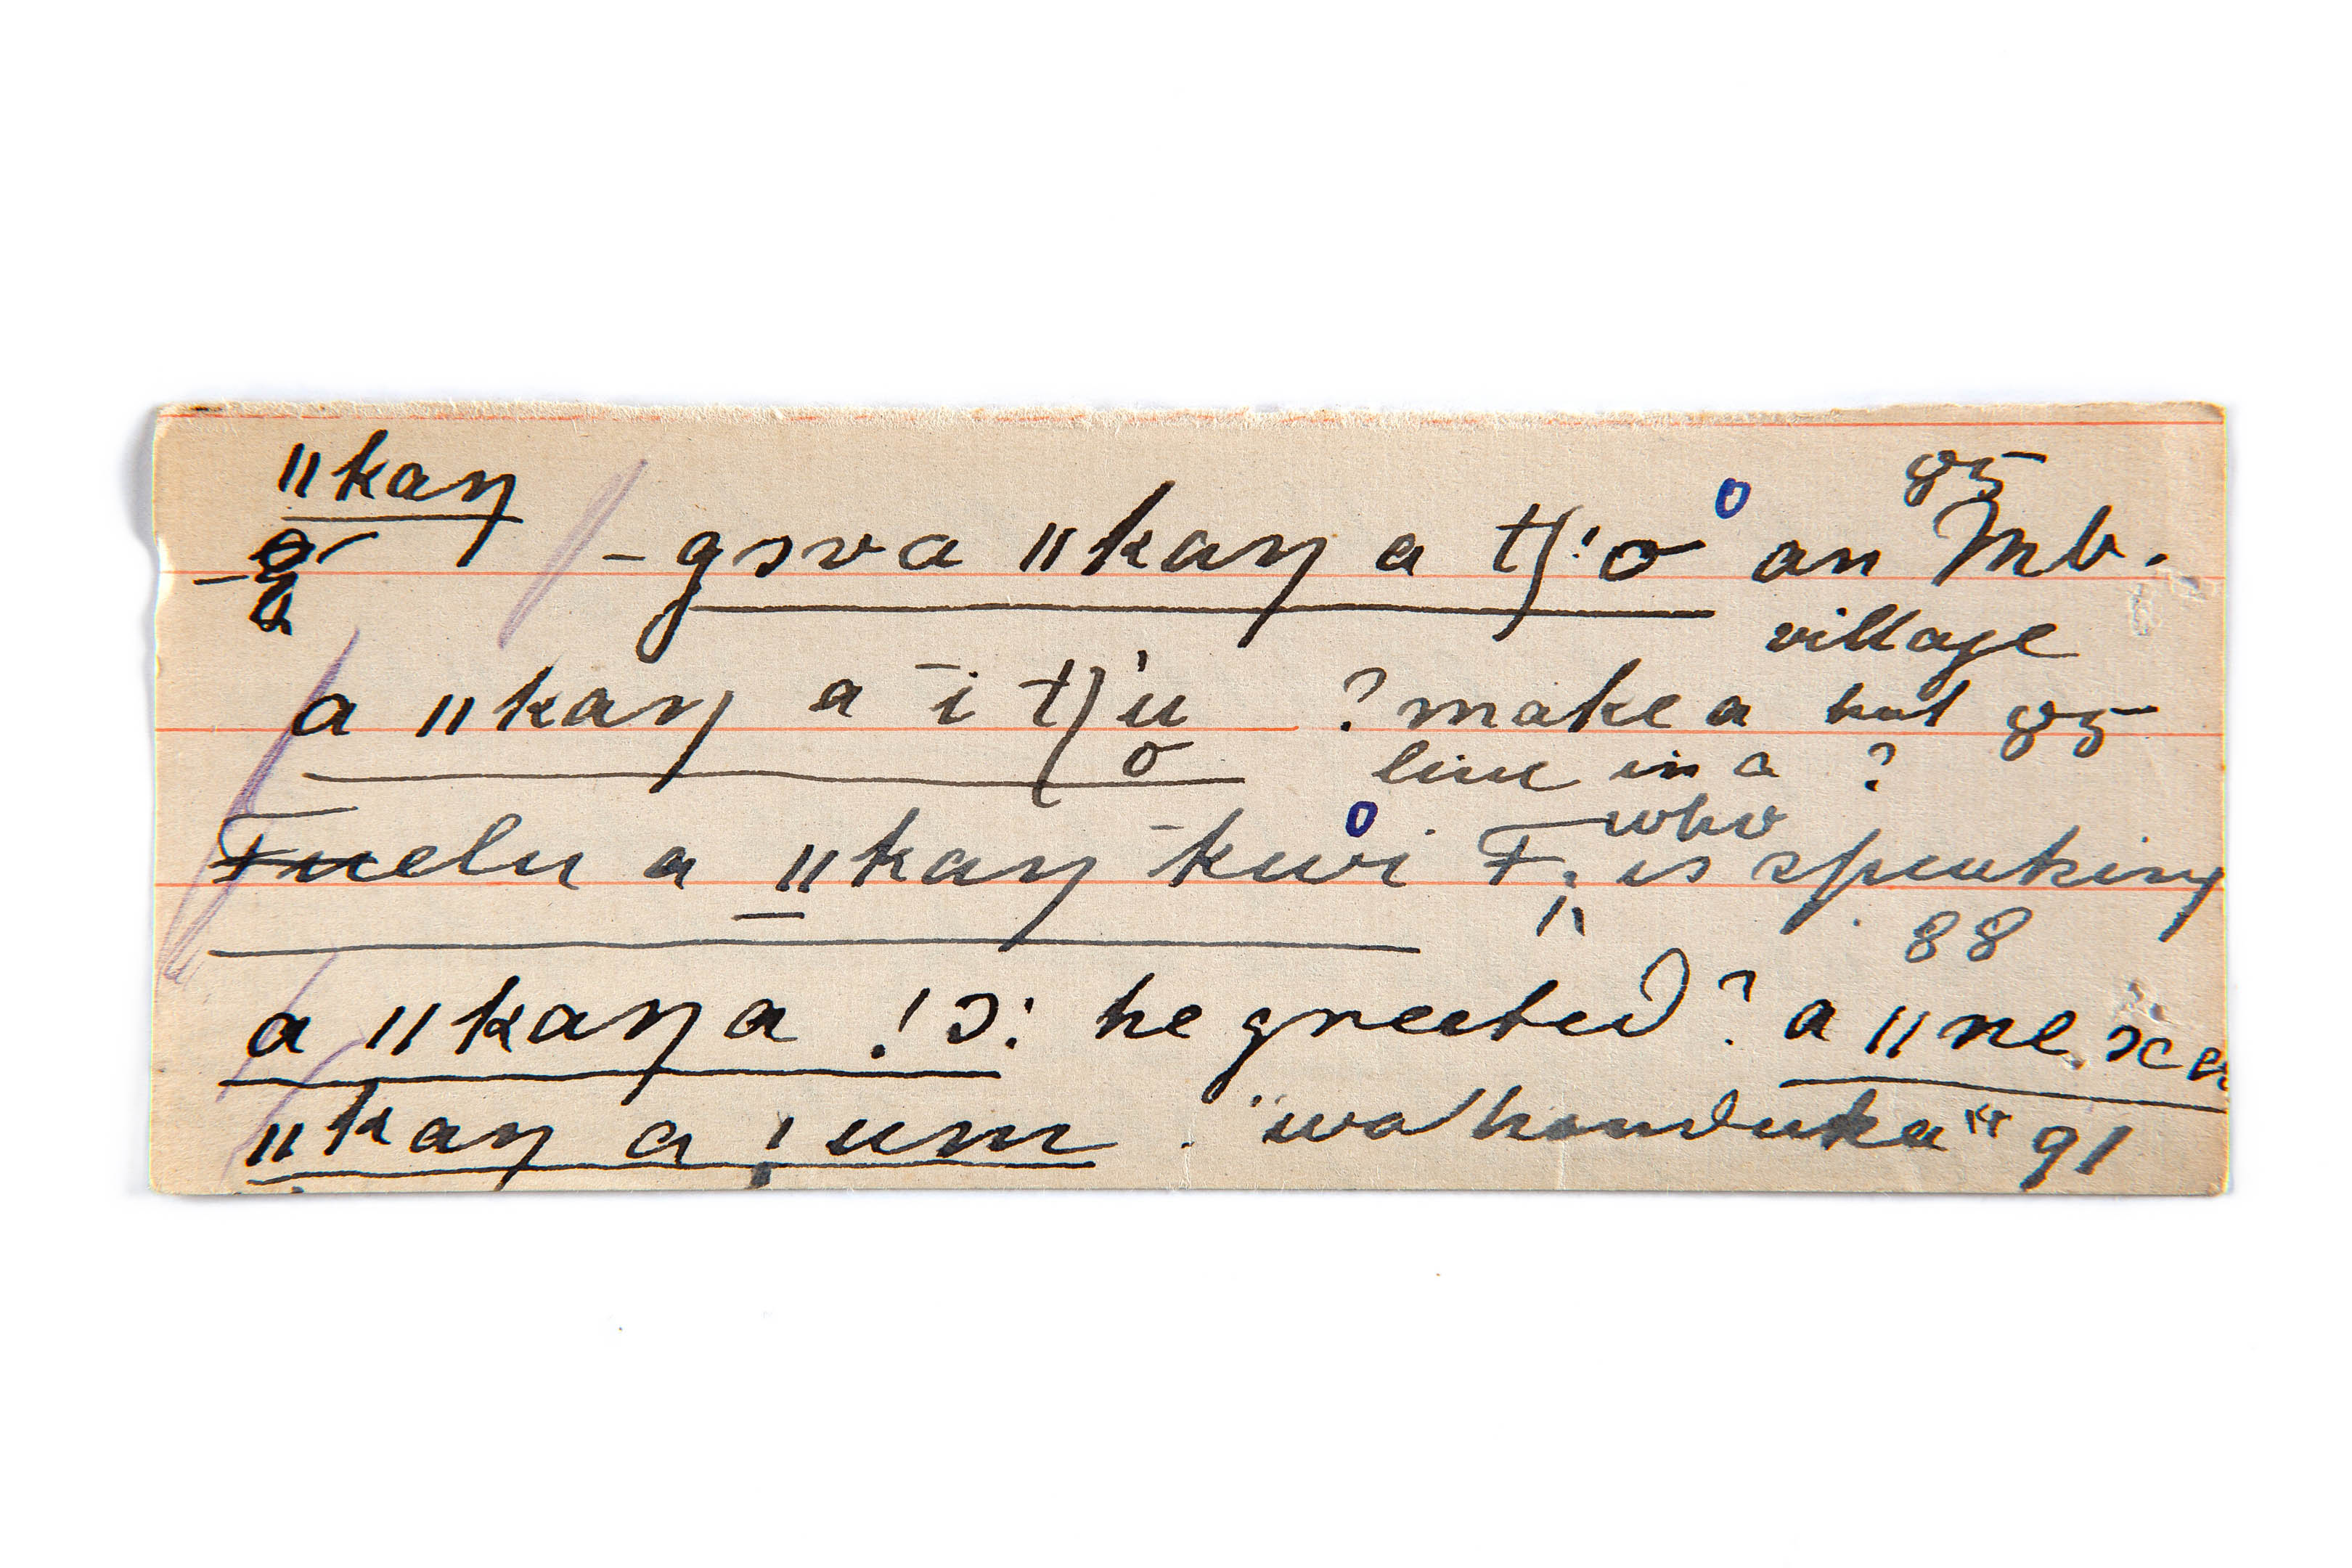 ǁkaŋ
– gɔva ǁkaŋ a tʃ'o an Mb. 85
village
a ǁkaŋ a ī tʃ'u ? make a hut 85
o line in a ?
Fuelu a ǁkaŋ ‾kwi F. who is speaking
88
a ǁkaŋa !ɔ: he greeted? a ǁne xa
ǁkaŋ a !um . "wa handuka" 91